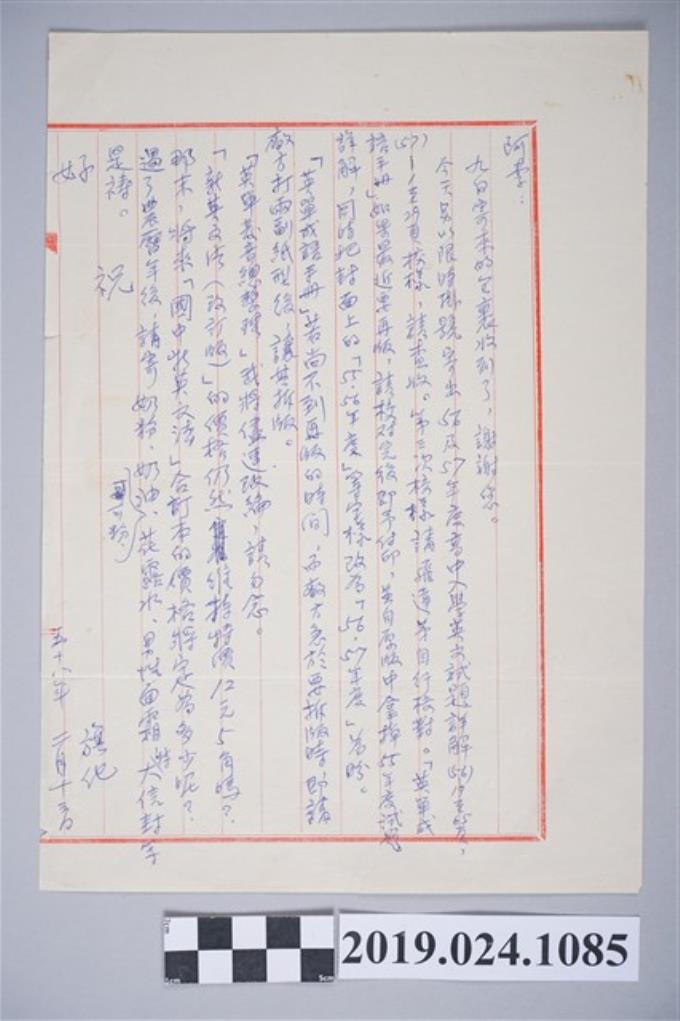 阿李：
九日寄來的包裹收到了，謝謝您。
今天另以限時掛號寄出56及57年度高中入學英文試題詳解(56)1至
(57)1－1至29頁校樣，請查收。第三次校樣請雁達弟自行核對。「英單成
語手冊」如果最近要再版，請校對完後即予付印，並自原版中拿掉55年度試題
詳解，同時把封面上的「55.56年度」等字樣改為「56.57年度」為盼。
「英單成語手冊」若尚不到再版的時間，而敵方急於要拆版時，即請
敵方打兩副紙型後，讓其拆版。
「英單發音總整理」我將儘速改編，請勿念。
「新英文法（改訂版）」的價格仍然維持特價12元5角嗎？
那末，將來「國中英文法」合訂本的價格將定為多少呢？
過了農曆年後，請寄奶粉、奶油、花露水、男性面霜、特大信封等
可可粉、
是禱。
祝
好
旗化
五十八年 二月十三日
2019.024.1085
7cm
0cm
5cm